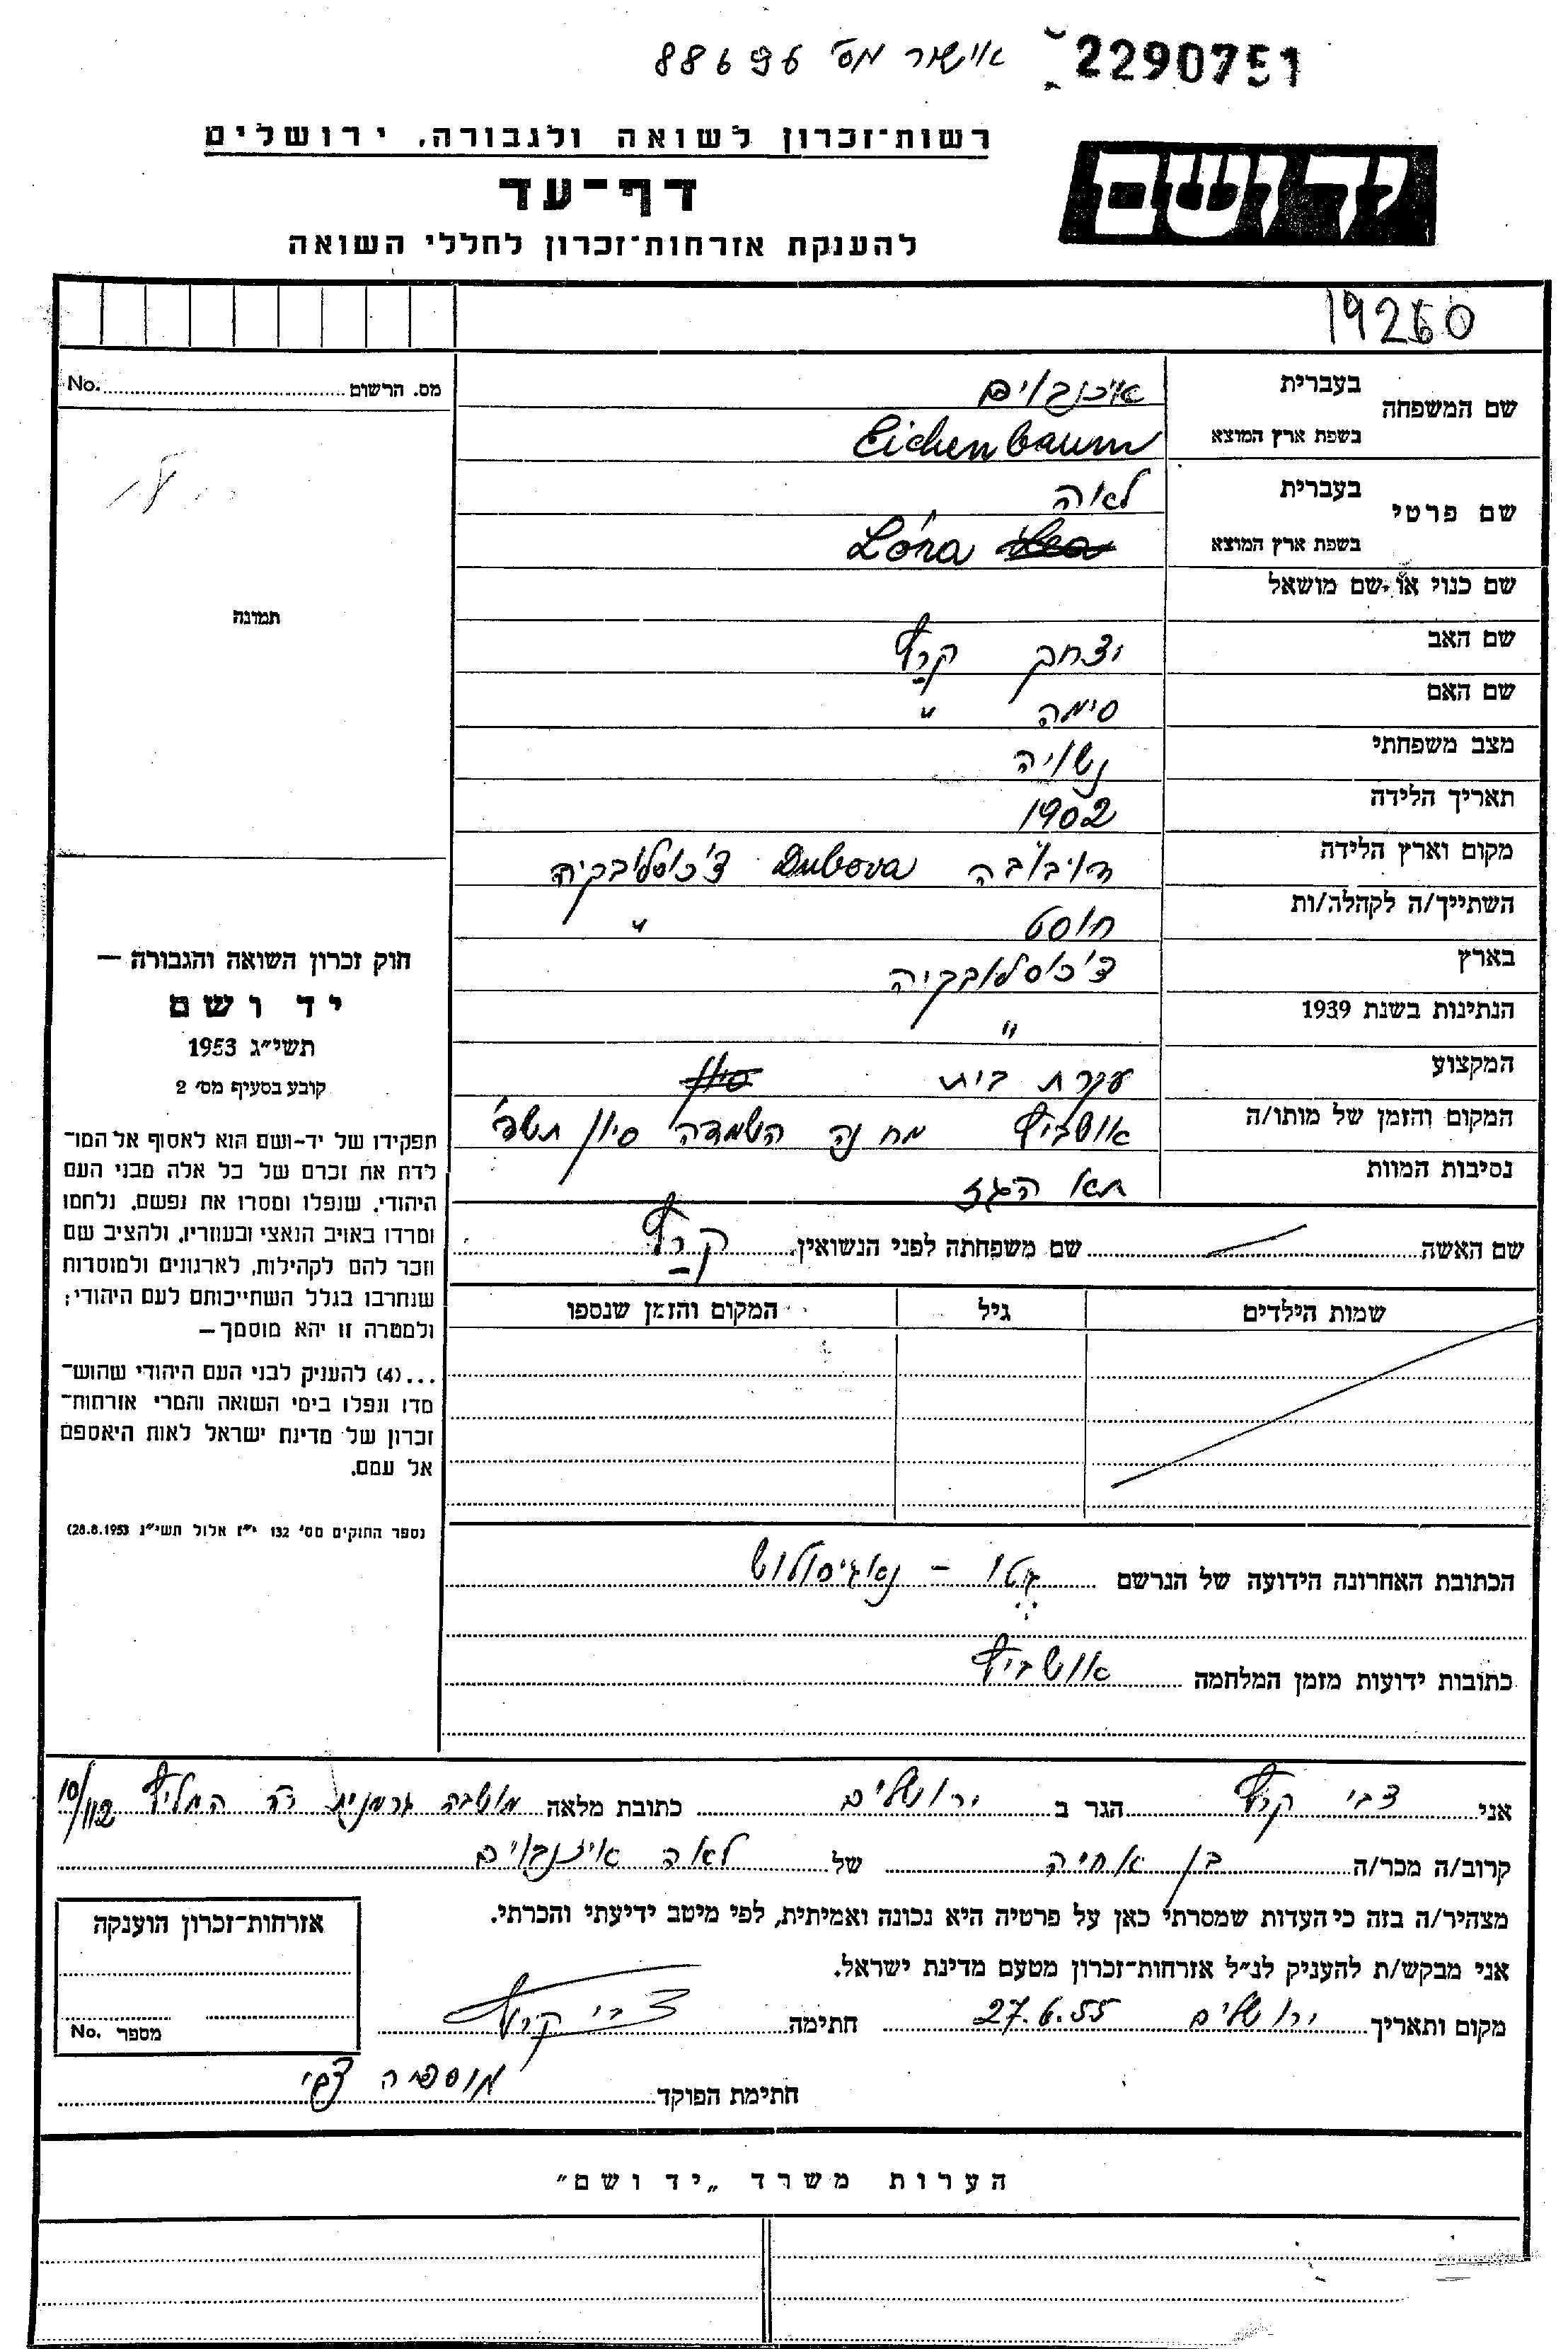 אישור מס' 88696
2290751
רשות־זכרון לשואה ולגבורה, ירושלים
יד ושם
דף־עד
להענקת אזרחות־זכרון לחללי השואה
19260
מס. הרשום No.
תמונה
חוק זכרון השואה והגבורה —
יד ושם
תשי״ג 1953
קובע בסעיף מס׳ 2
תפקידו של יד-ושם הוא לאסוף אל המו־
לדת את זכרם של כל אלה מבני העם
היהודי, שנפלו ומסרו את נפשם, נלחמו
ומרדו באויב הנאצי ובעוזריו, ולהציב שם
וזכר להם לקהילות, לארגונים ולמוסדות
שנחרבו בגלל השתייכותם לעם היהודי;
ולמטרה זו יהא מוסמך—
...(4) להעניק לבני העם היהודי שהוש־
מדו ונפלו בימי השואה והמרי אזרחות־
זכרון של מדינת ישראל לאות היאספם
אל עמם.
(ספר החוקים מס׳ 132 י״ז אלול תשי״ג 28.8.1953)
שם המשפחה בעברית איכנבוים
בשפת ארץ המוצא Eichenbaum
שם פרטי בעברית לאה
בשפת ארץ המוצא Lea Lóra
שם כנוי או שם מושאל
שם האב יצחק קרץ
שם האם סימה "
מצב משפחתי נשויה
תאריך הלידה 1902
מקום וארץ הלידה דובובה Dubova צ'כוסלובקיה
השתייך/ה לקהלה/ות חוסט "
בארץ צ'כוסלובקיה
הנתינות בשנת 1939 "
המקצוע עקרת בית סיון
המקום והזמן של מותו/ה אושביץ מחנה השמדה סיון תש"ד
נסיבות המוות תא הגז
שם האשה שם משפחתה לפני הנשואין קרץ
שמות הילדים גיל המקום והזמן שנספו
הכתובת האחרונה הידועה של הנרשם גטו -
כתובות ידועות מזמן המלחמה אושביץ
אני צבי קרץ הגר ב ירושלים כתובת מלאה מושבה גרמנית רח המליץ 10/112
קרוב/ה מכר/ה בן אחיה של לאה איכנבוים
מצהיר/ה בזה כי העדות שמסרתי כאן על פרטיה היא נכונה ואמיתית, לפי מיטב ידיעתי והכרתי.
אני מבקש/ת להעניק לנ״ל אזרחות־זכרון מטעם מדינת ישראל.
מקום ותאריך ירושלים 27.6.55 חתימה צבי קרץ
חתימת הפוקד צבי
אזרחות־זכרון הוענקה
מספר No.
הערות משרד „יד ושם״